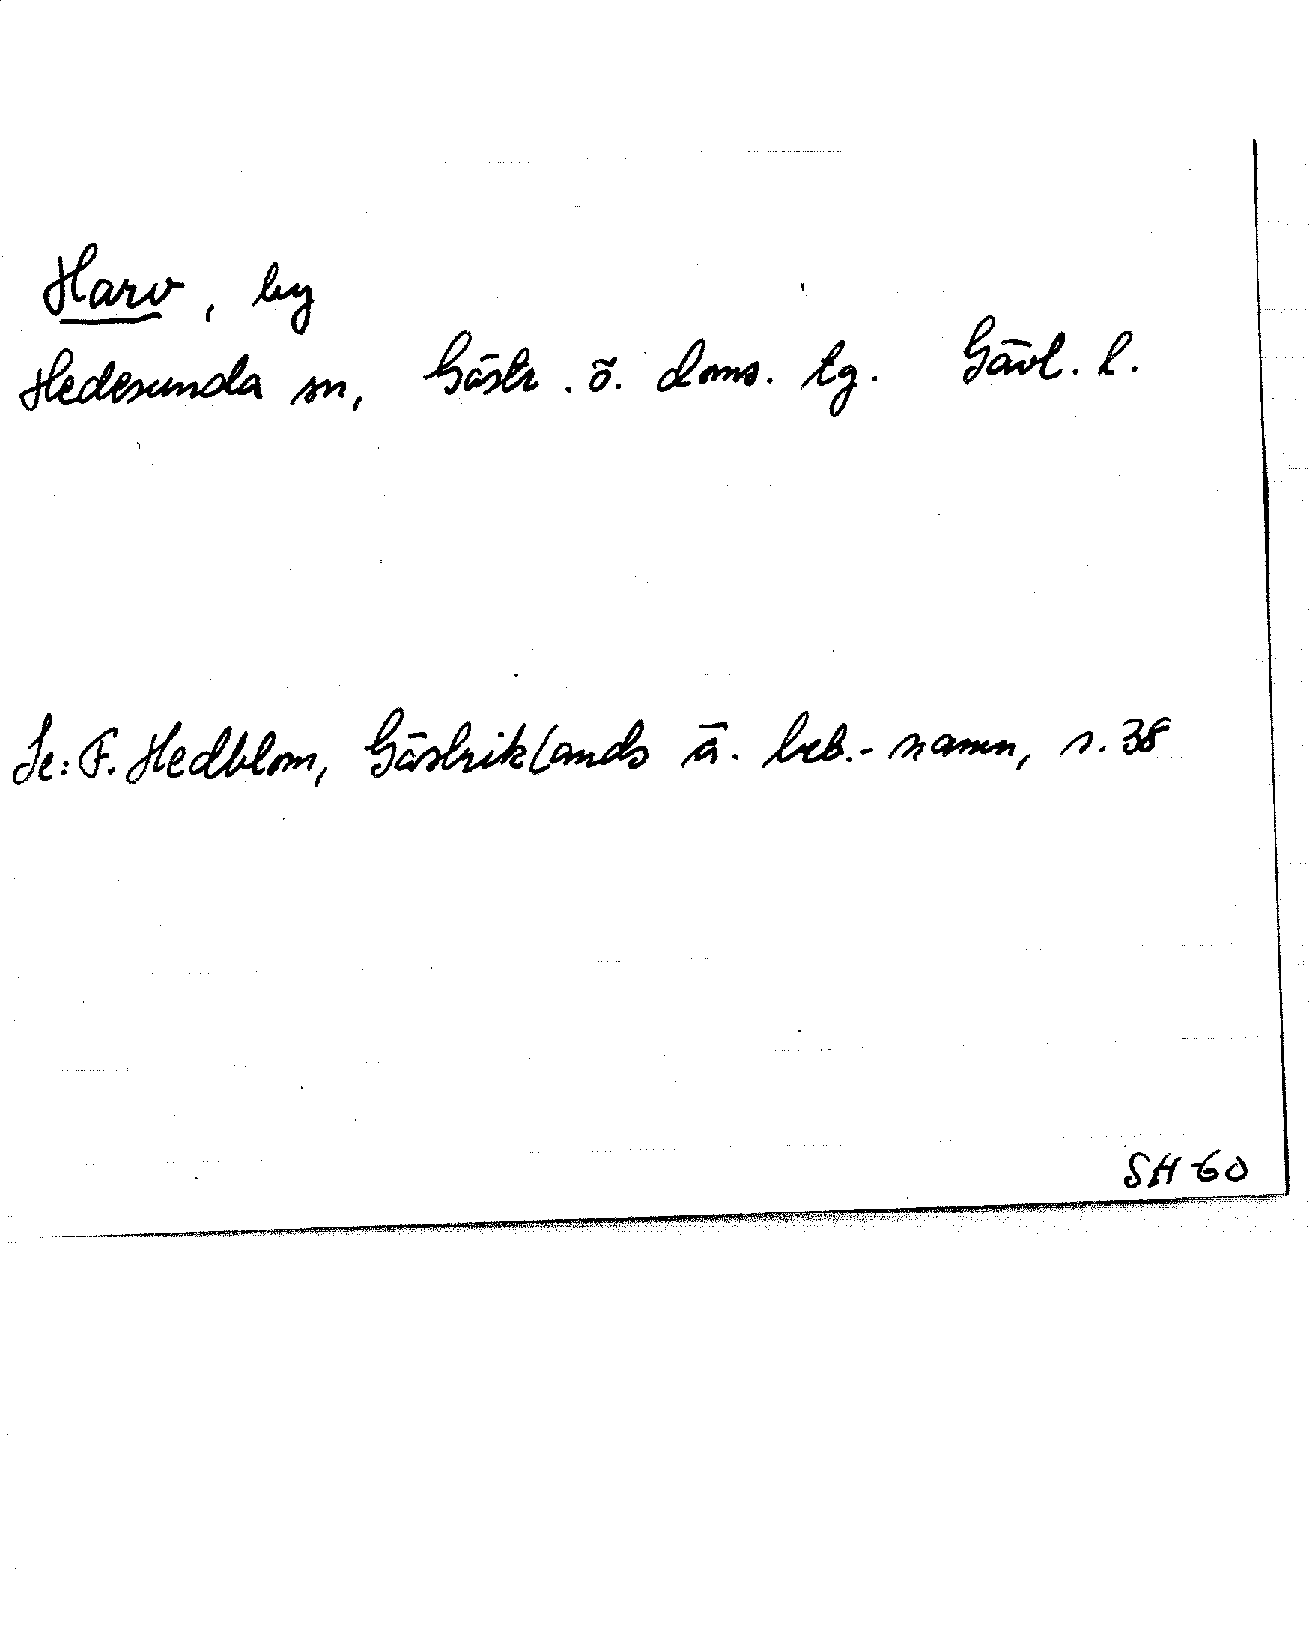 Harv, by
Hedesunda sn, Gästr. ö. doms. tg. Gävl. l.
Se: F. Hedblom, Gästriklands ä. beb.-namn, s. 38
SH 60